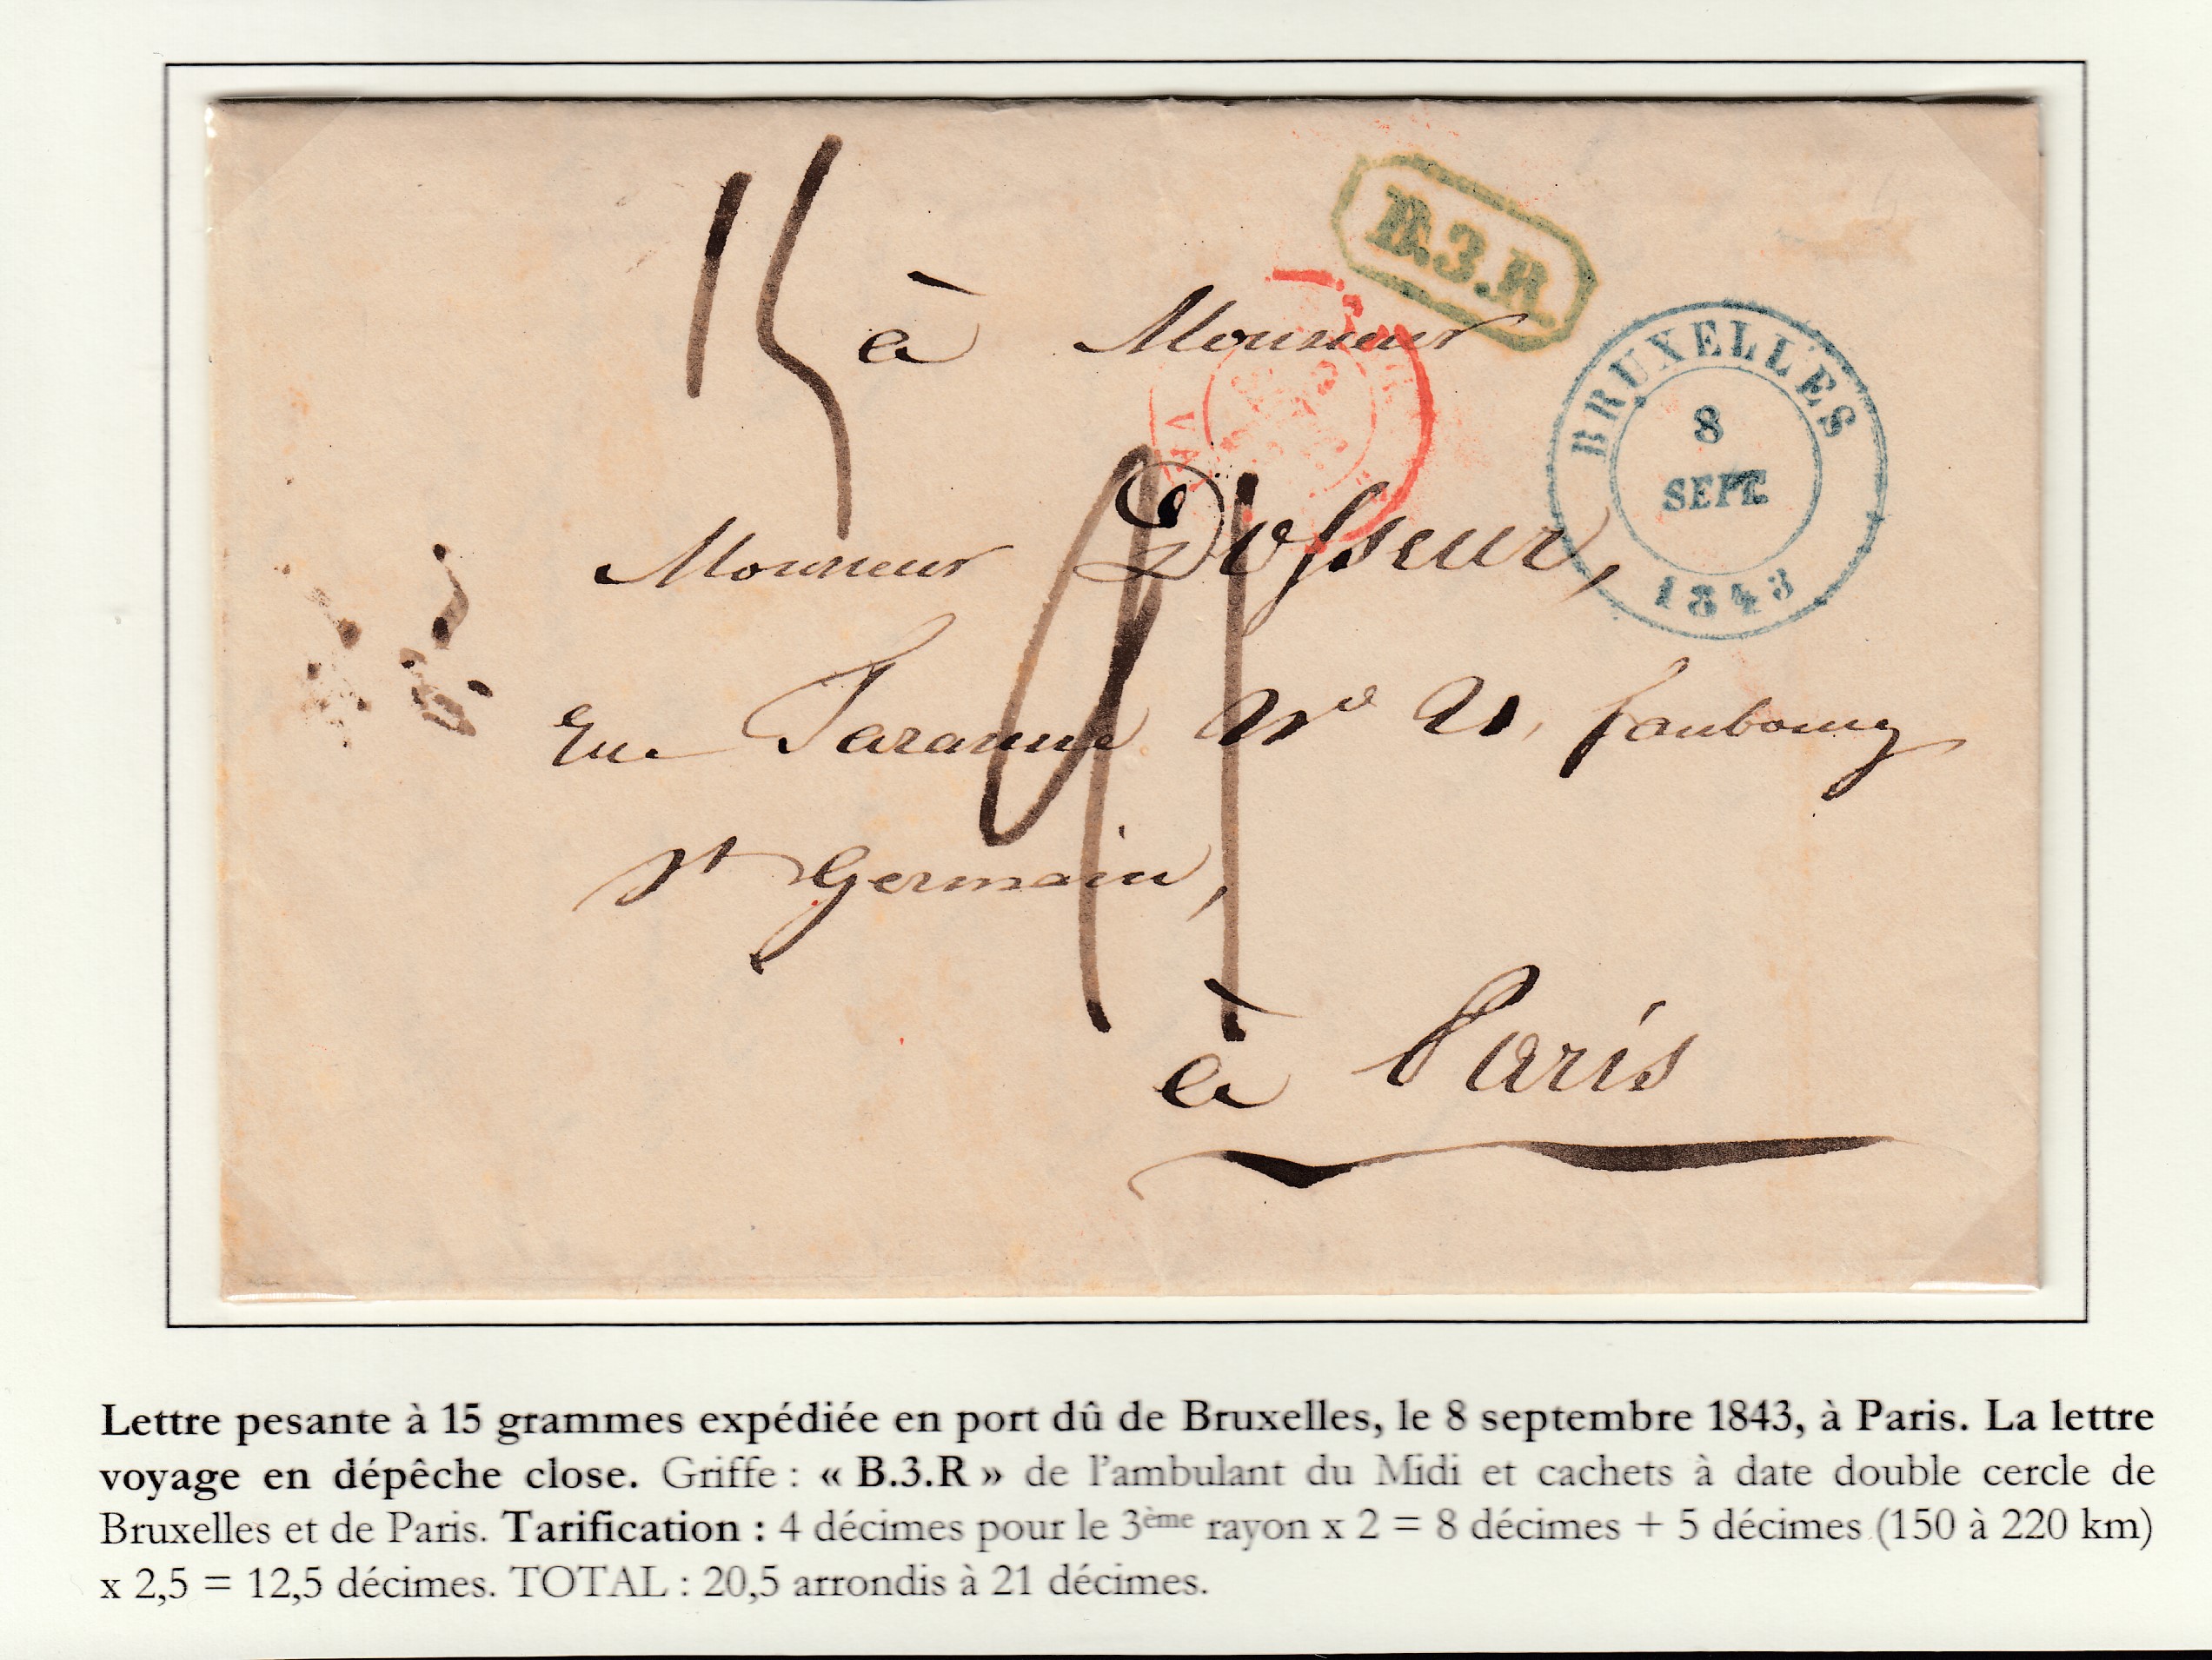 15
B.3.R
à Monsieur
BRUXELLES
8
SEPT.
1843
Monsieur Dosseur,
Rue Taranne N° 21, faubourg
St Germain,
21
à Paris
Lettre pesante à 15 grammes expédiée en port dû de Bruxelles, le 8 septembre 1843, à Paris. La lettre
voyage en dépêche close. Griffe : « B.3.R » de l'ambulant du Midi et cachets à date double cercle de
Bruxelles et de Paris. Tarification : 4 décimes pour le 3ème rayon x 2 = 8 décimes + 5 décimes (150 à 220 km)
x 2,5 = 12,5 décimes. TOTAL : 20,5 arrondis à 21 décimes.